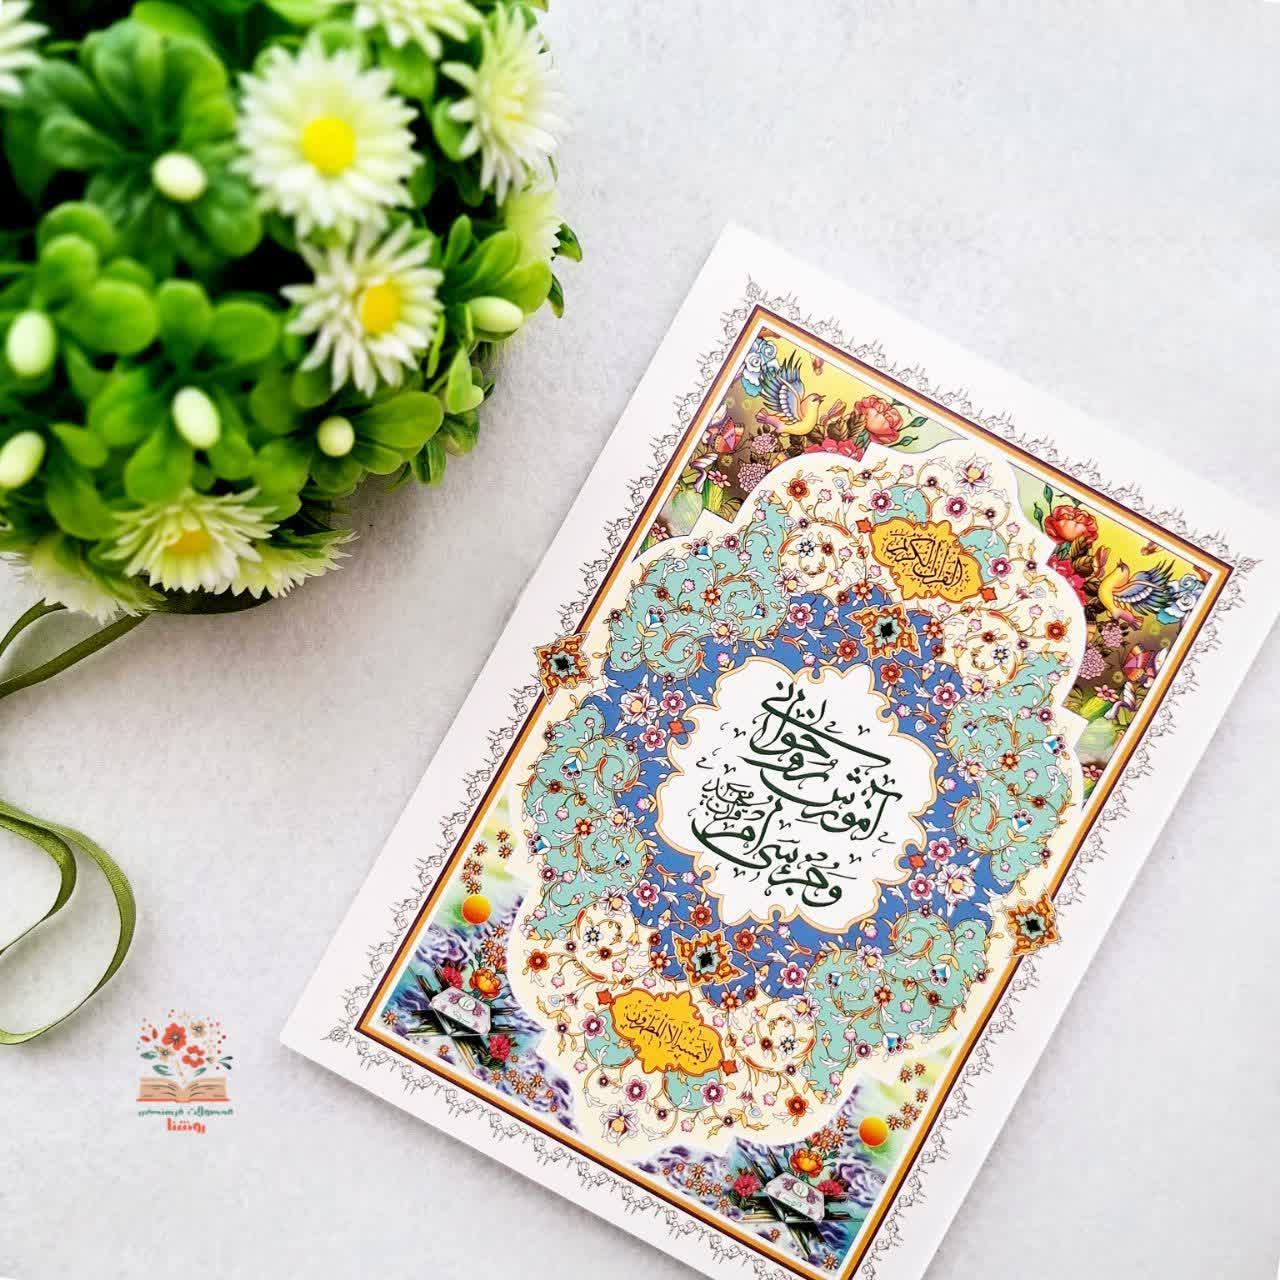 القرآن الکریم
آموزش روخوانی
و جزء سی‌ام
قرآن مجید
لا یمسه الا المطهرون
محصولات فرهنگی
روشنا